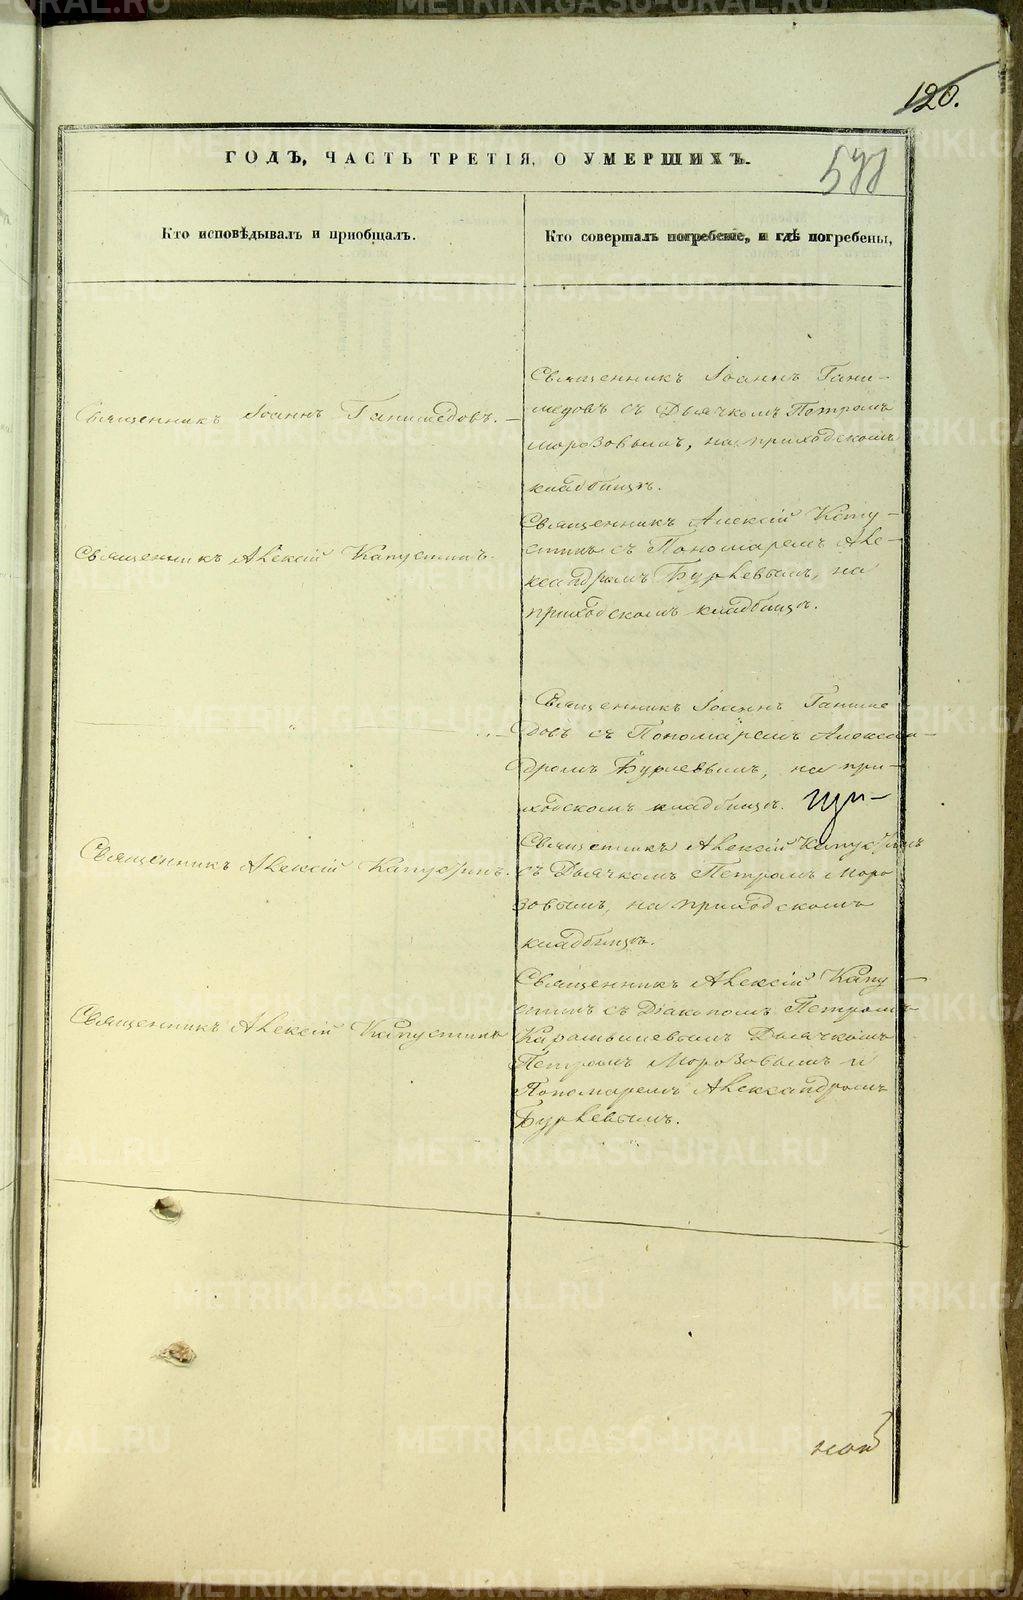 120.
ГОДЪ, ЧАСТЬ ТРЕТІЯ, О УМЕРШИХЪ.
Кто исповѣдывалъ и пріобщалъ.
Кто совершалъ погребеніе, и гдѣ погребены,
Священникъ Іоаннъ Ганимедовъ. –
Священникъ Іоаннъ Гани-
медовъ съ Дьячкомъ Петромъ
Морозовымъ, на приходскомъ
кладбищѣ.
Священникъ Алексій Капустинъ.
Священникъ Алексій Капу-
стинъ съ Пономаремъ Але-
ксандромъ Бурлевымъ, на
приходскомъ кладбищѣ.
Священникъ Іоаннъ Ганиме
довъ съ Пономаремъ Алексан-
дромъ Бурлевымъ, на при-
ходскомъ кладбищѣ.
Священникъ Алексій Капустинъ.
Священникъ Алексій Капустинъ
съ Дьячкомъ Петромъ Моро
зовымъ, на приходскомъ
кладбищѣ.
Священникъ Алексій Капустинъ
Священникъ Алексій Капу-
стинъ съ Діакономъ Петромъ
Карамышевымъ Дьячкомъ
Петромъ Морозовымъ и
Пономаремъ Александромъ
Бурлевымъ.
METRIKI.GASO-URAL.RU